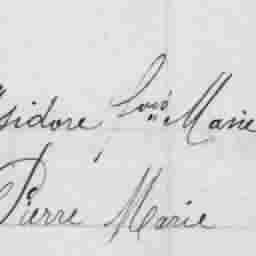 Isidore, Marie
Pierre Marie